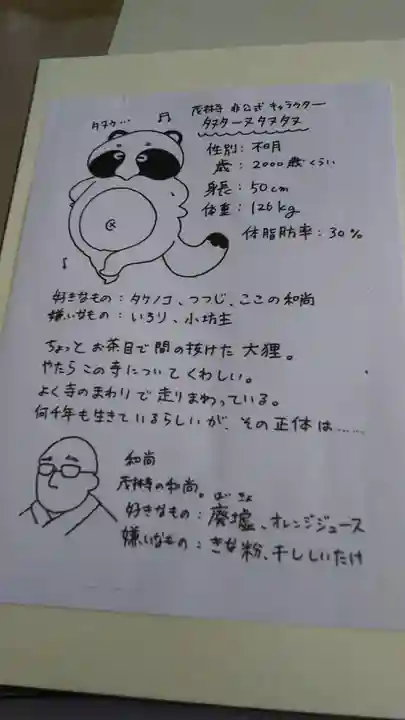 タヌウ…
茂林寺 非公式キャラクター
タヌターヌタヌタヌ
性別：不明
歳：2000歳くらい
身長：50cm
体重：126kg
体脂肪率：30%
好きなもの：タケノコ、つつじ、ここの和尚
嫌いなもの：いろり、小坊主
ちょっとお茶目で間の抜けた大狸。
やたらこの寺についてくわしい。
よく寺のまわりで走りまわっている。
何千年も生きているらしいが、その正体は……
和尚
茂林寺の和尚。
はいきょ
好きなもの：廃墟、オレンジジュース
嫌いなもの：きな粉、干ししいたけ